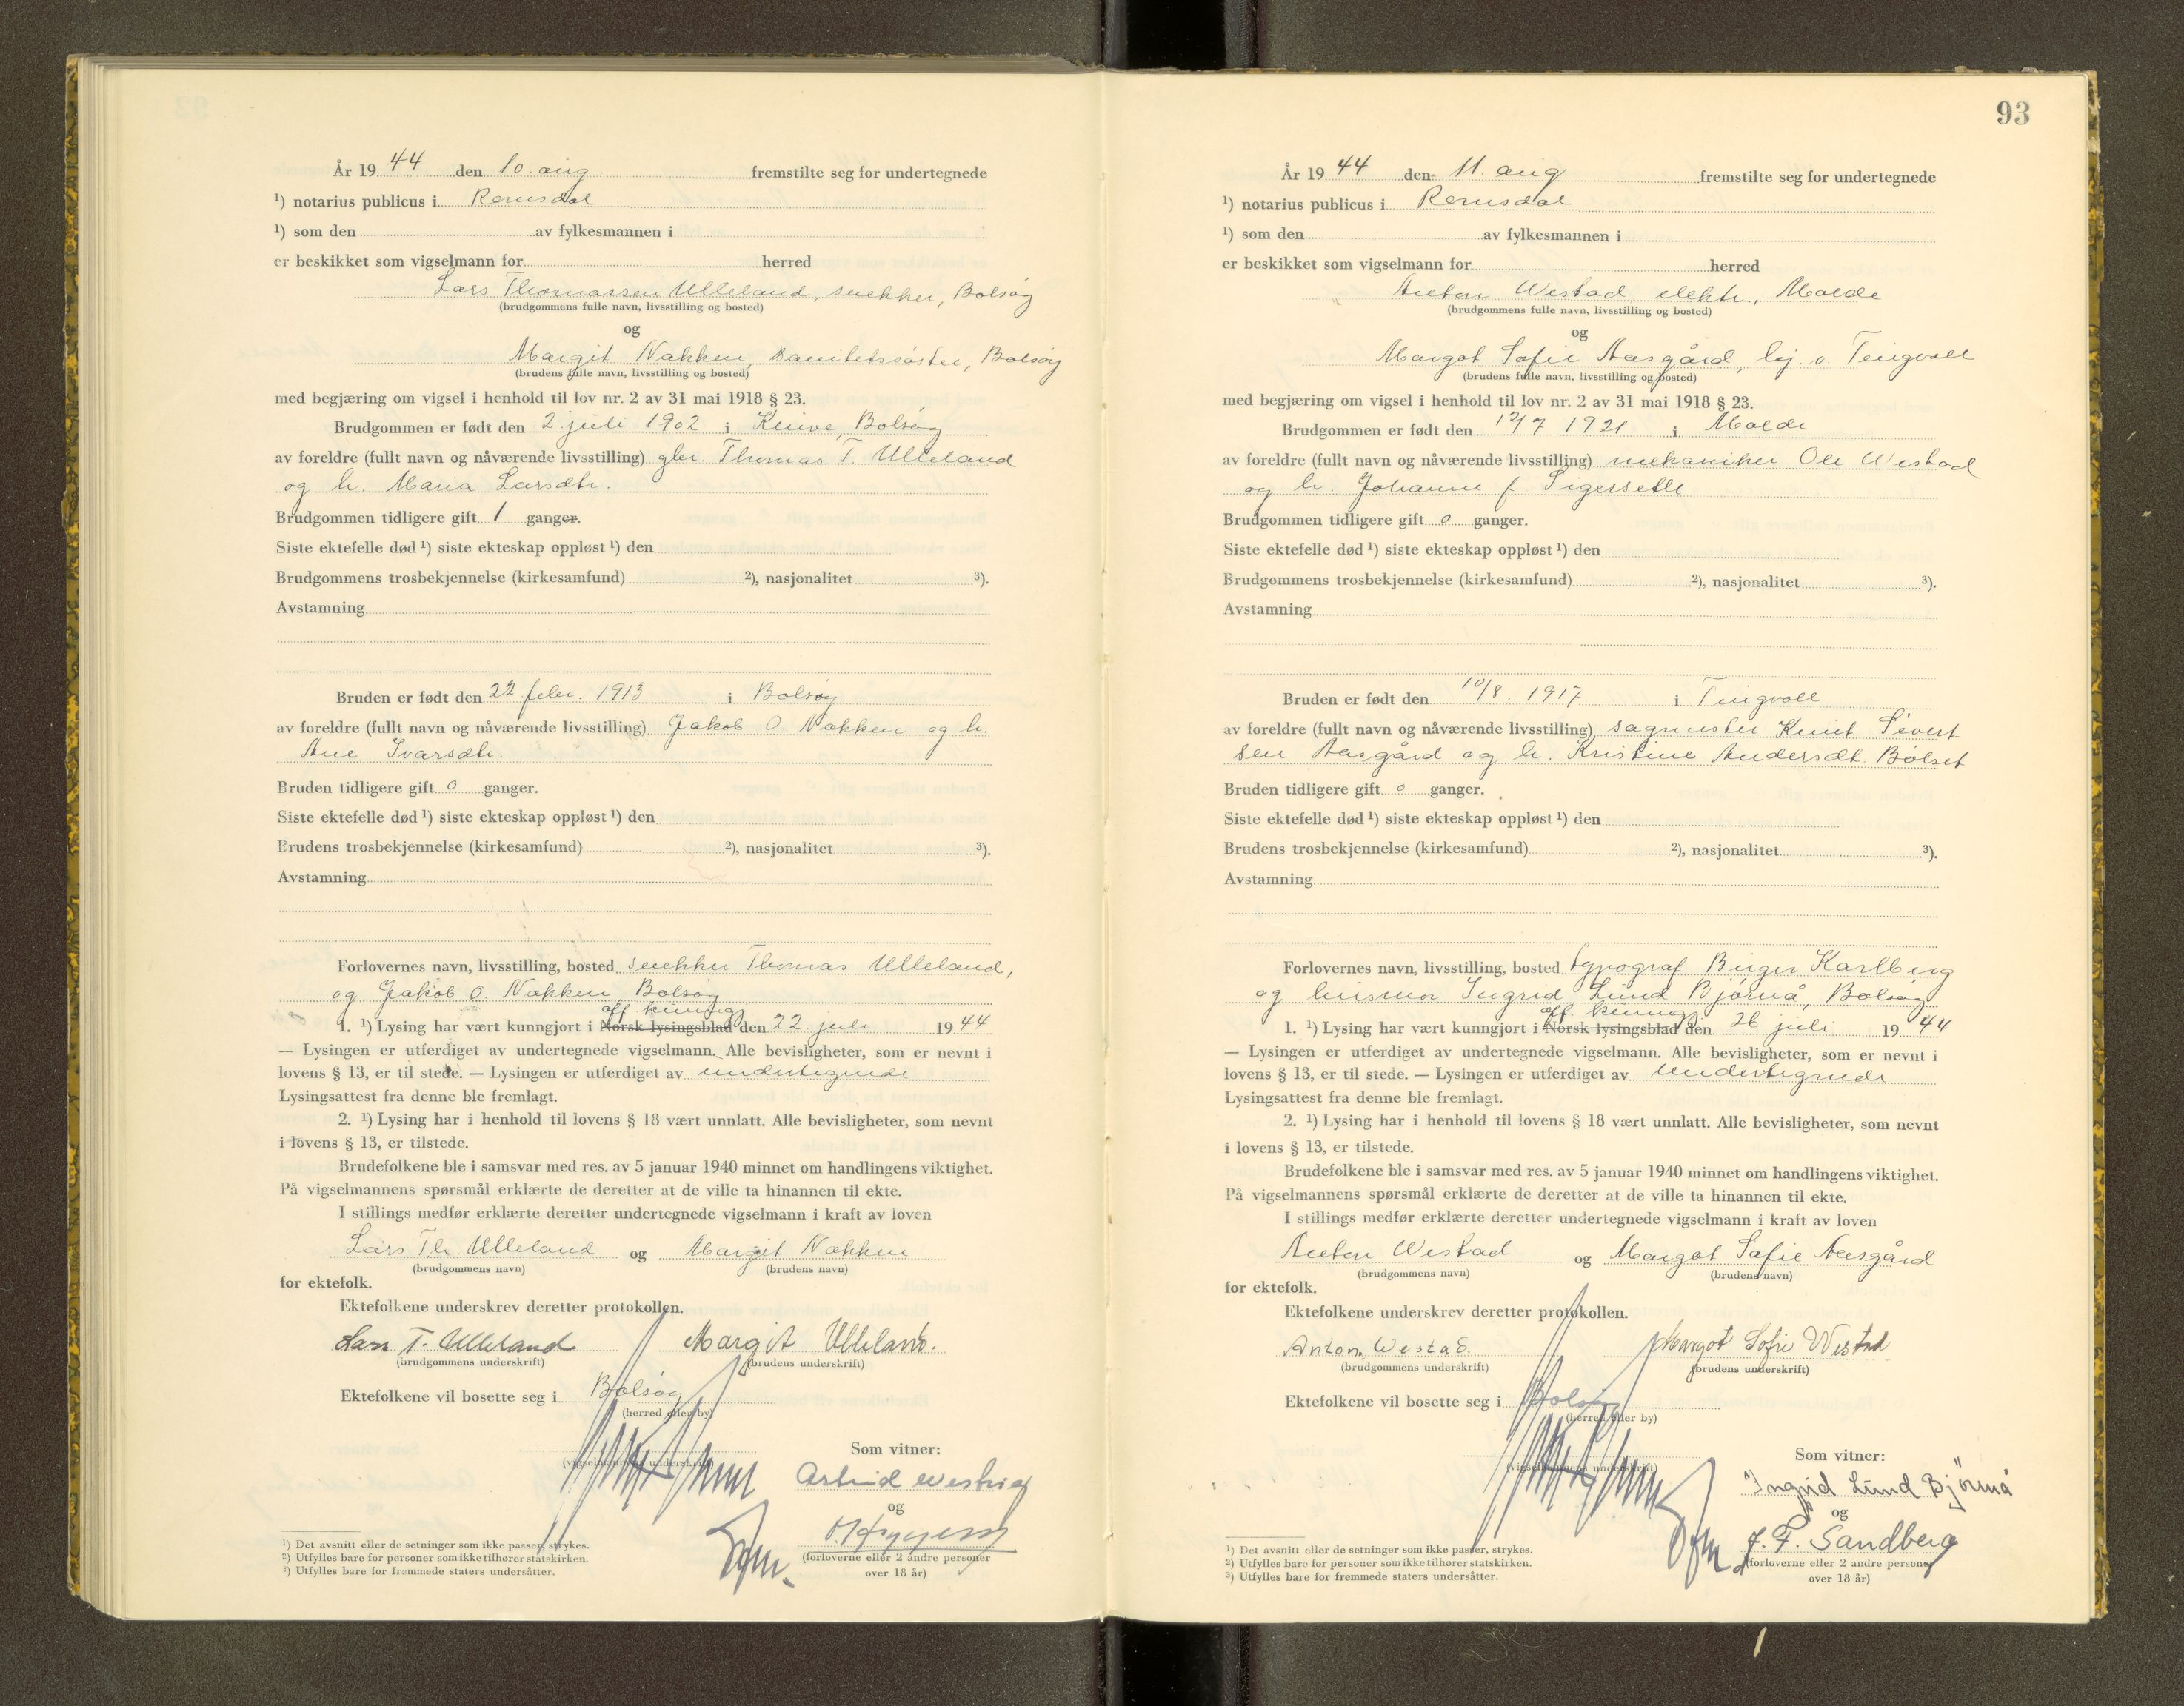 År 1944 den 10. aug. fremstilte seg for undertegnede
¹) notarius publicus i Romsdal
¹) som den av fylkesmannen i
er beskikket som vigselmann for herred
Lars Thomassen Ulleland, snekker, Bolsøy
(brudgommens fulle navn, livsstilling og bosted)
og
Margit Nakken, sanitetssøster, Bolsøy
(brudens fulle navn, livsstilling og bosted)
med begjæring om vigsel i henhold til lov nr. 2 av 31 mai 1918 § 23.
Brudgommen er født den 2 juli 1902 i Kleive, Bolsøy
av foreldre (fullt navn og nåværende livsstilling) gbr. Thomas T. Ulleland
og h. Maria Larsdtr.
Brudgommen tidligere gift 1 ganger.
Siste ektefelle død ¹) siste ekteskap oppløst ¹) den
Brudgommens trosbekjennelse (kirkesamfund) ²), nasjonalitet ³).
Avstamning
Bruden er født den 22 febr. 1913 i Bolsøy
av foreldre (fullt navn og nåværende livsstilling) Jakob O. Nakken og h.
Ane Ivarsdtr.
Bruden tidligere gift 0 ganger.
Siste ektefelle død ¹) siste ekteskap oppløst ¹) den
Brudens trosbekjennelse (kirkesamfund) ²), nasjonalitet ³).
Avstamning
Forlovernes navn, livsstilling, bosted snekker Thomas Ulleland,
og Jakob O. Nakken Bolsøy
off. kunng.
1. ¹) Lysing har vært kunngjort i Norsk lysingsblad den 22 juli 1944
— Lysingen er utferdiget av undertegnede vigselmann. Alle bevisligheter, som er nevnt i
lovens § 13, er til stede. — Lysingen er utferdiget av undertegnede
Lysingsattest fra denne ble fremlagt.
2. ¹) Lysing har i henhold til lovens § 18 vært unnlatt. Alle bevisligheter, som nevnt
i lovens § 13, er tilstede.
Brudefolkene ble i samsvar med res. av 5 januar 1940 minnet om handlingens viktighet.
På vigselmannens spørsmål erklærte de deretter at de ville ta hinannen til ekte.
I stillings medfør erklærte deretter undertegnede vigselmann i kraft av loven
Lars Th. Ulleland og Margit Nakken
(brudgommens navn) (brudens navn)
for ektefolk.
Ektefolkene underskrev deretter protokollen.
Lars T. Ulleland Margit Ulleland.
(brudgommens underskrift) (brudens underskrift)
Ektefolkene vil bosette seg i Bolsøy
(herred eller by)
(vigselmannens underskrift)
Som vitner:
Astrid
og
(forloverne eller 2 andre personer
over 18 år)
¹) Det avsnitt eller de setninger som ikke passer, strykes.
²) Utfylles bare for personer som ikke tilhører statskirken.
³) Utfylles bare for fremmede staters undersåtter.
93
År 1944 den 11. aug fremstilte seg for undertegnede
¹) notarius publicus i Romsdal
¹) som den av fylkesmannen i
er beskikket som vigselmann for herred
Anton Westad, elektr., Molde
(brudgommens fulle navn, livsstilling og bosted)
og
Margot Sofie Aasgård, hj. v. Tingvoll
(brudens fulle navn, livsstilling og bosted)
med begjæring om vigsel i henhold til lov nr. 2 av 31 mai 1918 § 23.
Brudgommen er født den 12/7 1921 i Molde
av foreldre (fullt navn og nåværende livsstilling) mekaniker Ole Westad
og h. Johanne f.
Brudgommen tidligere gift 0 ganger.
Siste ektefelle død ¹) siste ekteskap oppløst ¹) den
Brudgommens trosbekjennelse (kirkesamfund) ²), nasjonalitet ³).
Avstamning
Bruden er født den 10/8. 1917 i Tingvoll
av foreldre (fullt navn og nåværende livsstilling) sagmester Knut Sivert
sen Aasgård og h. Kristine Andersdt. Bølset
Bruden tidligere gift 0 ganger.
Siste ektefelle død ¹) siste ekteskap oppløst ¹) den
Brudens trosbekjennelse (kirkesamfund) ²), nasjonalitet ³).
Avstamning
Forlovernes navn, livsstilling, bosted typograf Birger Karlberg
og husmor Ingrid Lund Bjørnå, Bolsøy
off. kunng.
1. ¹) Lysing har vært kunngjort i Norsk lysingsblad den 26 juli 1944
— Lysingen er utferdiget av undertegnede vigselmann. Alle bevisligheter, som er nevnt i
lovens § 13, er til stede. — Lysingen er utferdiget av undertegnede
Lysingsattest fra denne ble fremlagt.
2. ¹) Lysing har i henhold til lovens § 18 vært unnlatt. Alle bevisligheter, som nevnt
i lovens § 13, er tilstede.
Brudefolkene ble i samsvar med res. av 5 januar 1940 minnet om handlingens viktighet.
På vigselmannens spørsmål erklærte de deretter at de ville ta hinannen til ekte.
I stillings medfør erklærte deretter undertegnede vigselmann i kraft av loven
Anton Westad og Margot Sofie Aasgård
(brudgommens navn) (brudens navn)
for ektefolk.
Ektefolkene underskrev deretter protokollen.
Anton Westad. Margot Sofie Westad
(brudgommens underskrift) (brudens underskrift)
Ektefolkene vil bosette seg i Bolsøy
(herred eller by)
(vigselmannens underskrift)
Som vitner:
Ingrid Lund Bjørnå
og
J. F. Sandberg
(forloverne eller 2 andre personer
over 18 år)
¹) Det avsnitt eller de setninger som ikke passer, strykes.
²) Utfylles bare for personer som ikke tilhører statskirken.
³) Utfylles bare for fremmede staters undersåtter.